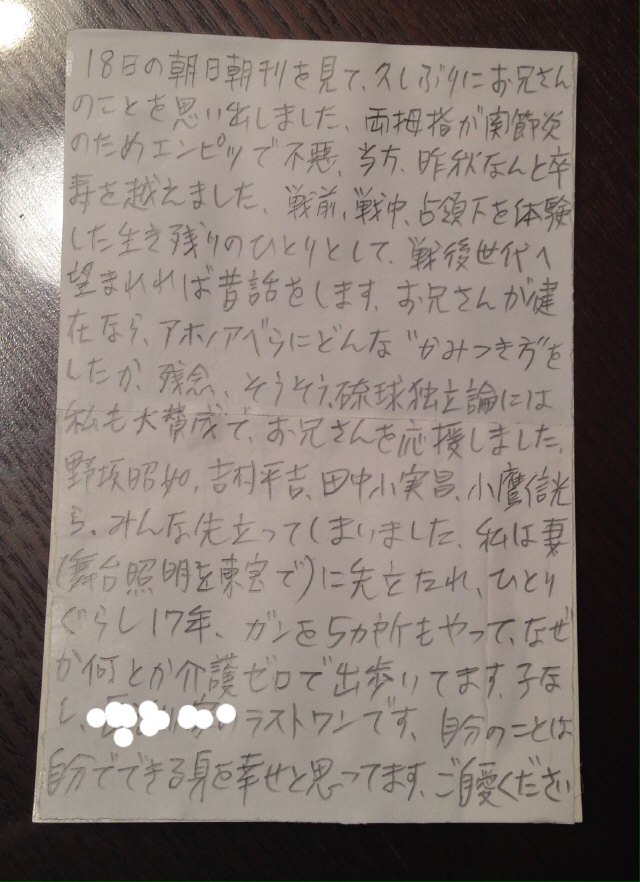 18日の朝日朝刊を見て、久しぶりにお兄さん
のことを思い出しました、両拇指が関節炎
のためエンピツで不悪、当方、昨秋なんと卒
寿を越えました、戦前、戦中、占領下を体験
した生き残りのひとりとして、戦後世代へ
望まれれば昔話をします、お兄さんが健
在なら、アホノアベらにどんな“かみつき方”を
したか、残念、そうそう、琉球独立論には
私も大賛成で、お兄さんを応援しました、
野坂昭如、吉村平吉、田中小実昌、小鷹信光
ら、みんな先立ってしまいました、私は妻
(舞台照明を東宝で)に先立たれ、ひとり
ぐらし17年、ガンを5カ所もやって、なぜ
か何とか介護ゼロで出歩いてます、子な
し、のラストワンです、自分のことは
自分でできる身を幸せと思ってます、ご自愛ください